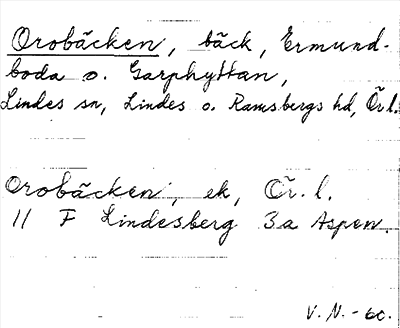 Orobäcken, bäck, Ermund-
boda o. Garphyttan,
Lindes sn, Lindes o. Ramsbergs hd, Ör.l.
Orobäcken, ek, Ör. l.
11 F Lindesberg 3a Aspen.
V. N. - 60.